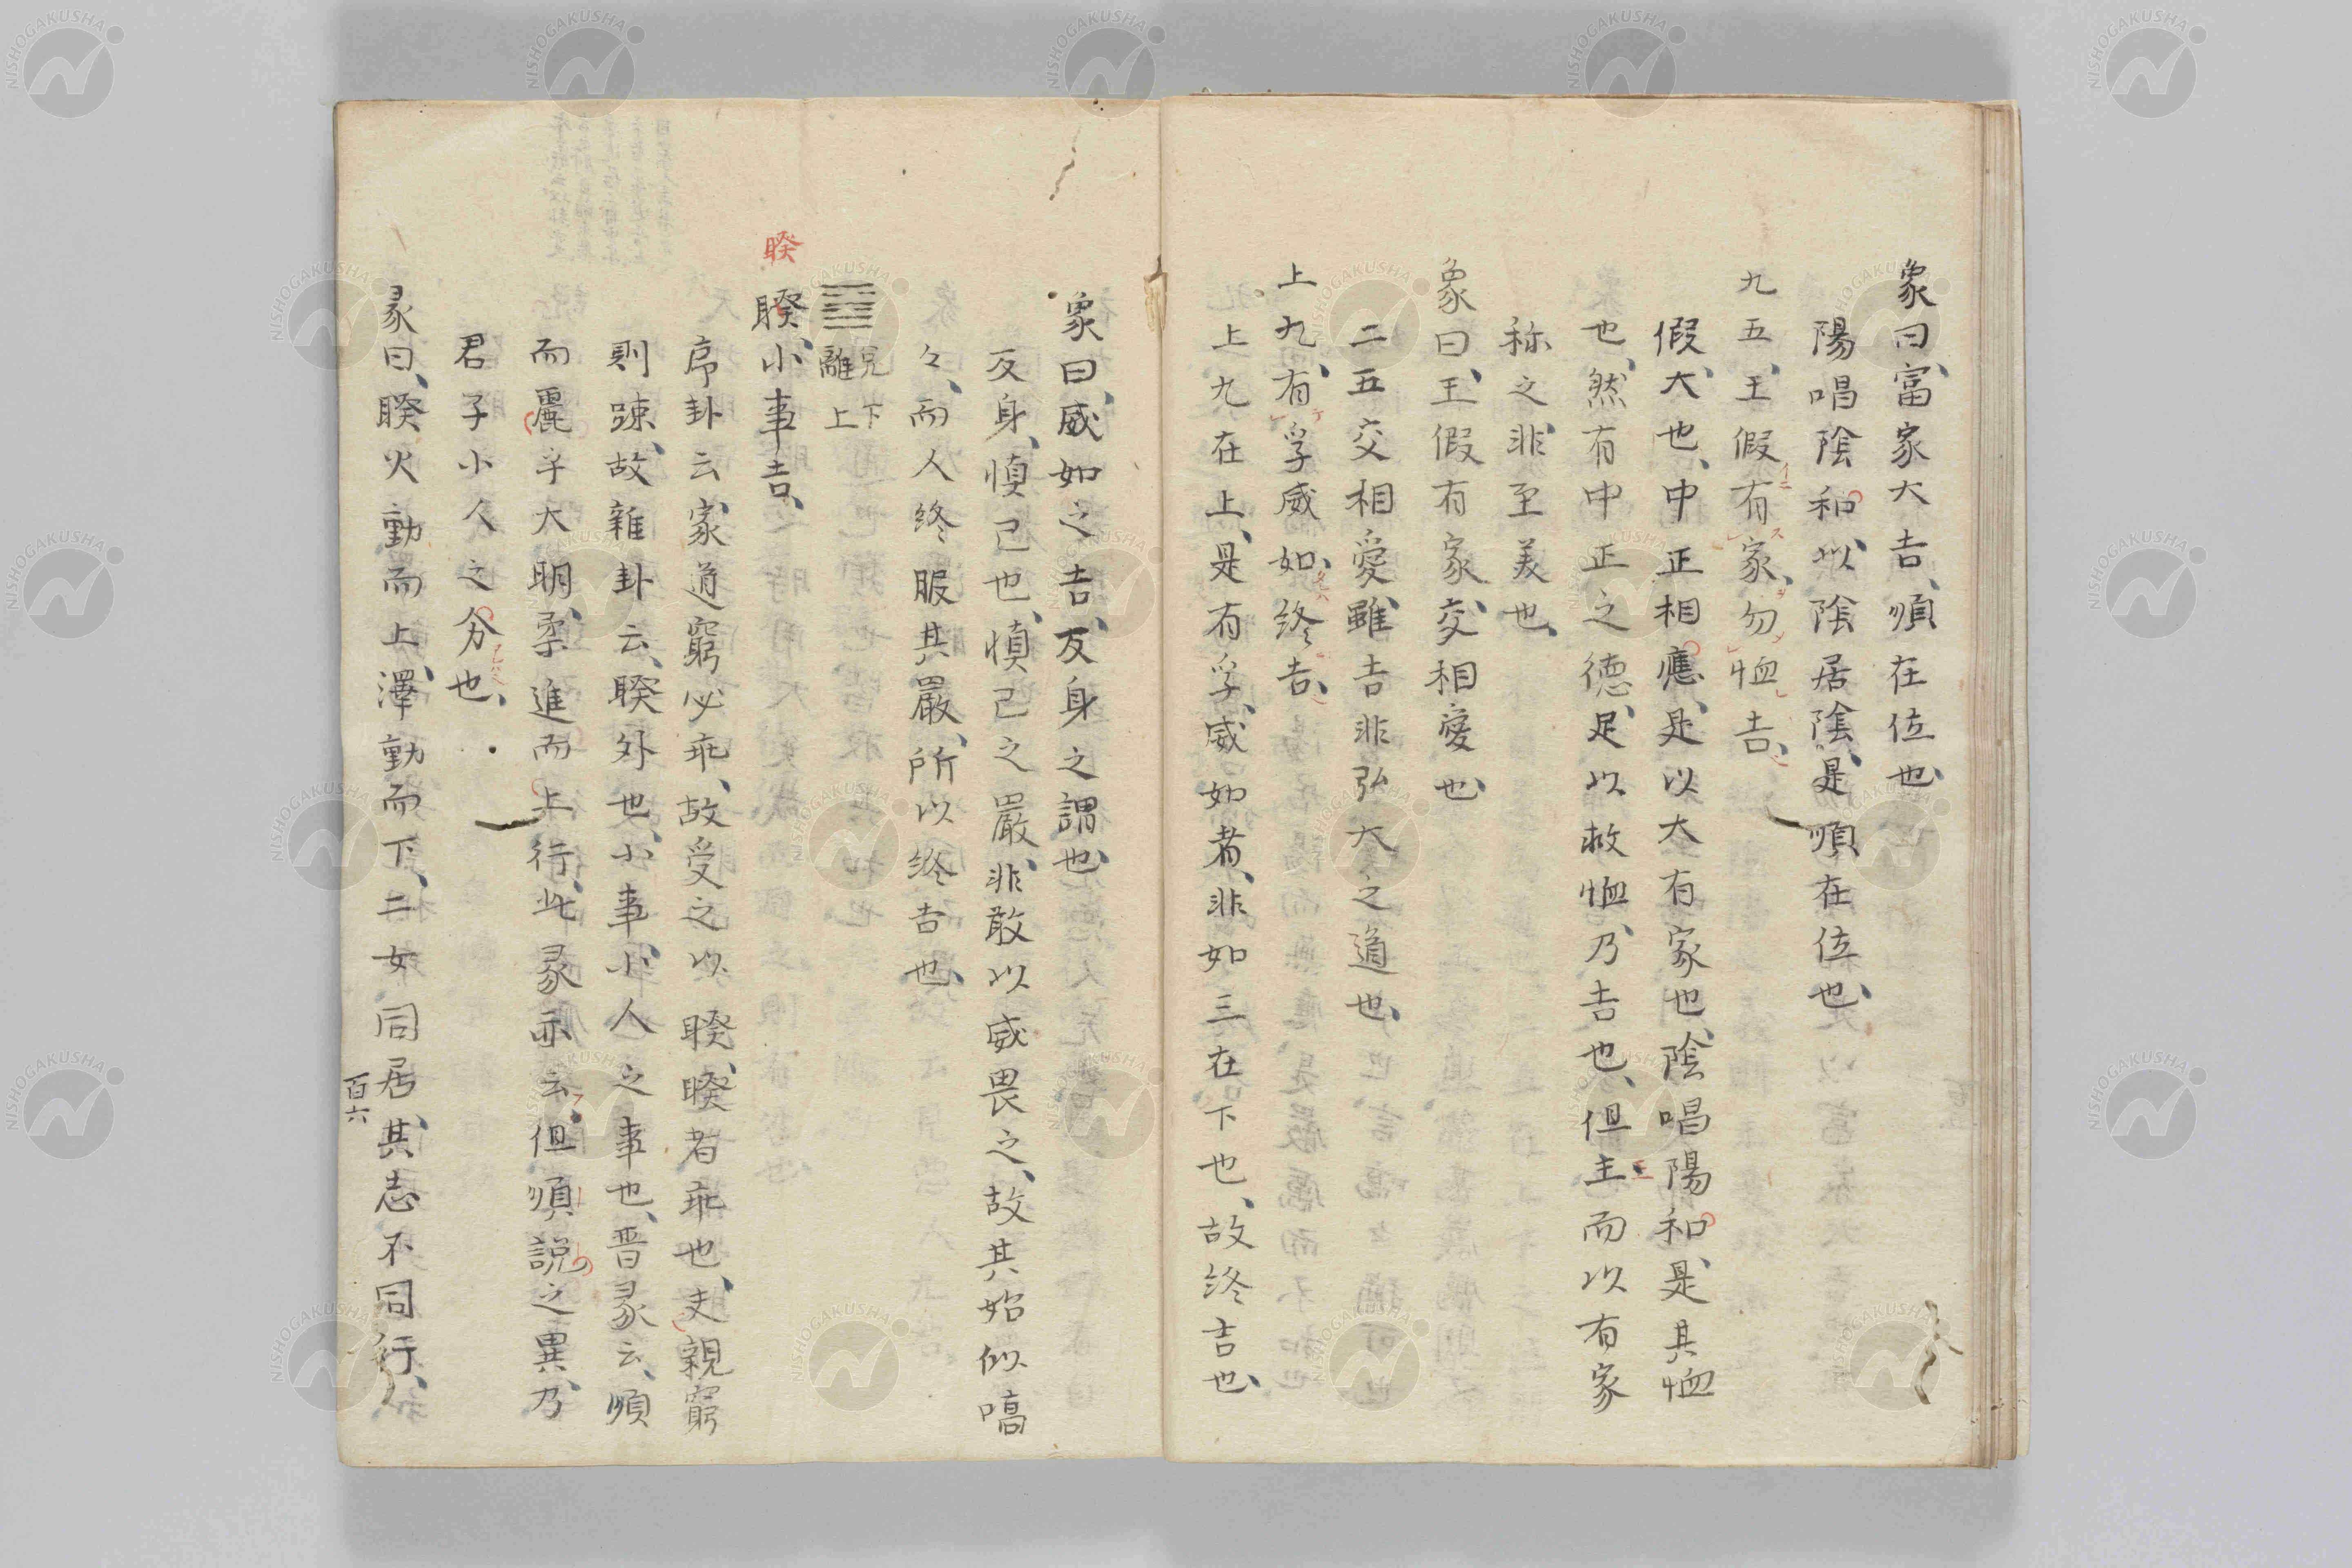 象曰、富家大吉、順在位也、
陽唱陰和、以陰居陰、是順在位也、
九五、王假有家、勿恤吉、
假、大也、中正相應、是以大有家也、陰唱陽和、是其恤
也、然有中正之德、足以救恤、乃吉也、但主而以有家
称之、非至美也、
象曰、王假有家、交相愛也、
二五交相愛、雖吉非弘大之道也、
上九、有孚威如、終吉、
上九在上、是有孚、威如者、非如三在下也、故終吉也、
象曰、威如之吉、反身之謂也、
反身、慎己也、慎己之嚴、非敢以威畏之、故其始似嗃
々、而人終服其嚴、所以終吉也、
䷥ 兌下離上
睽
睽、小事吉、
序卦云、家道窮必乖、故受之以睽、睽者乖也、夫親窮
則踈、故雜卦云、睽外也、小事、小人之事也、晋彖云、順
而麗乎大明、柔進而上行、此彖亦云、但順說之異、乃
君子小人之分也、
彖曰、睽火動而上、澤動而下、二女同居、其志不同行、
百六
NISHOGAKUSHA